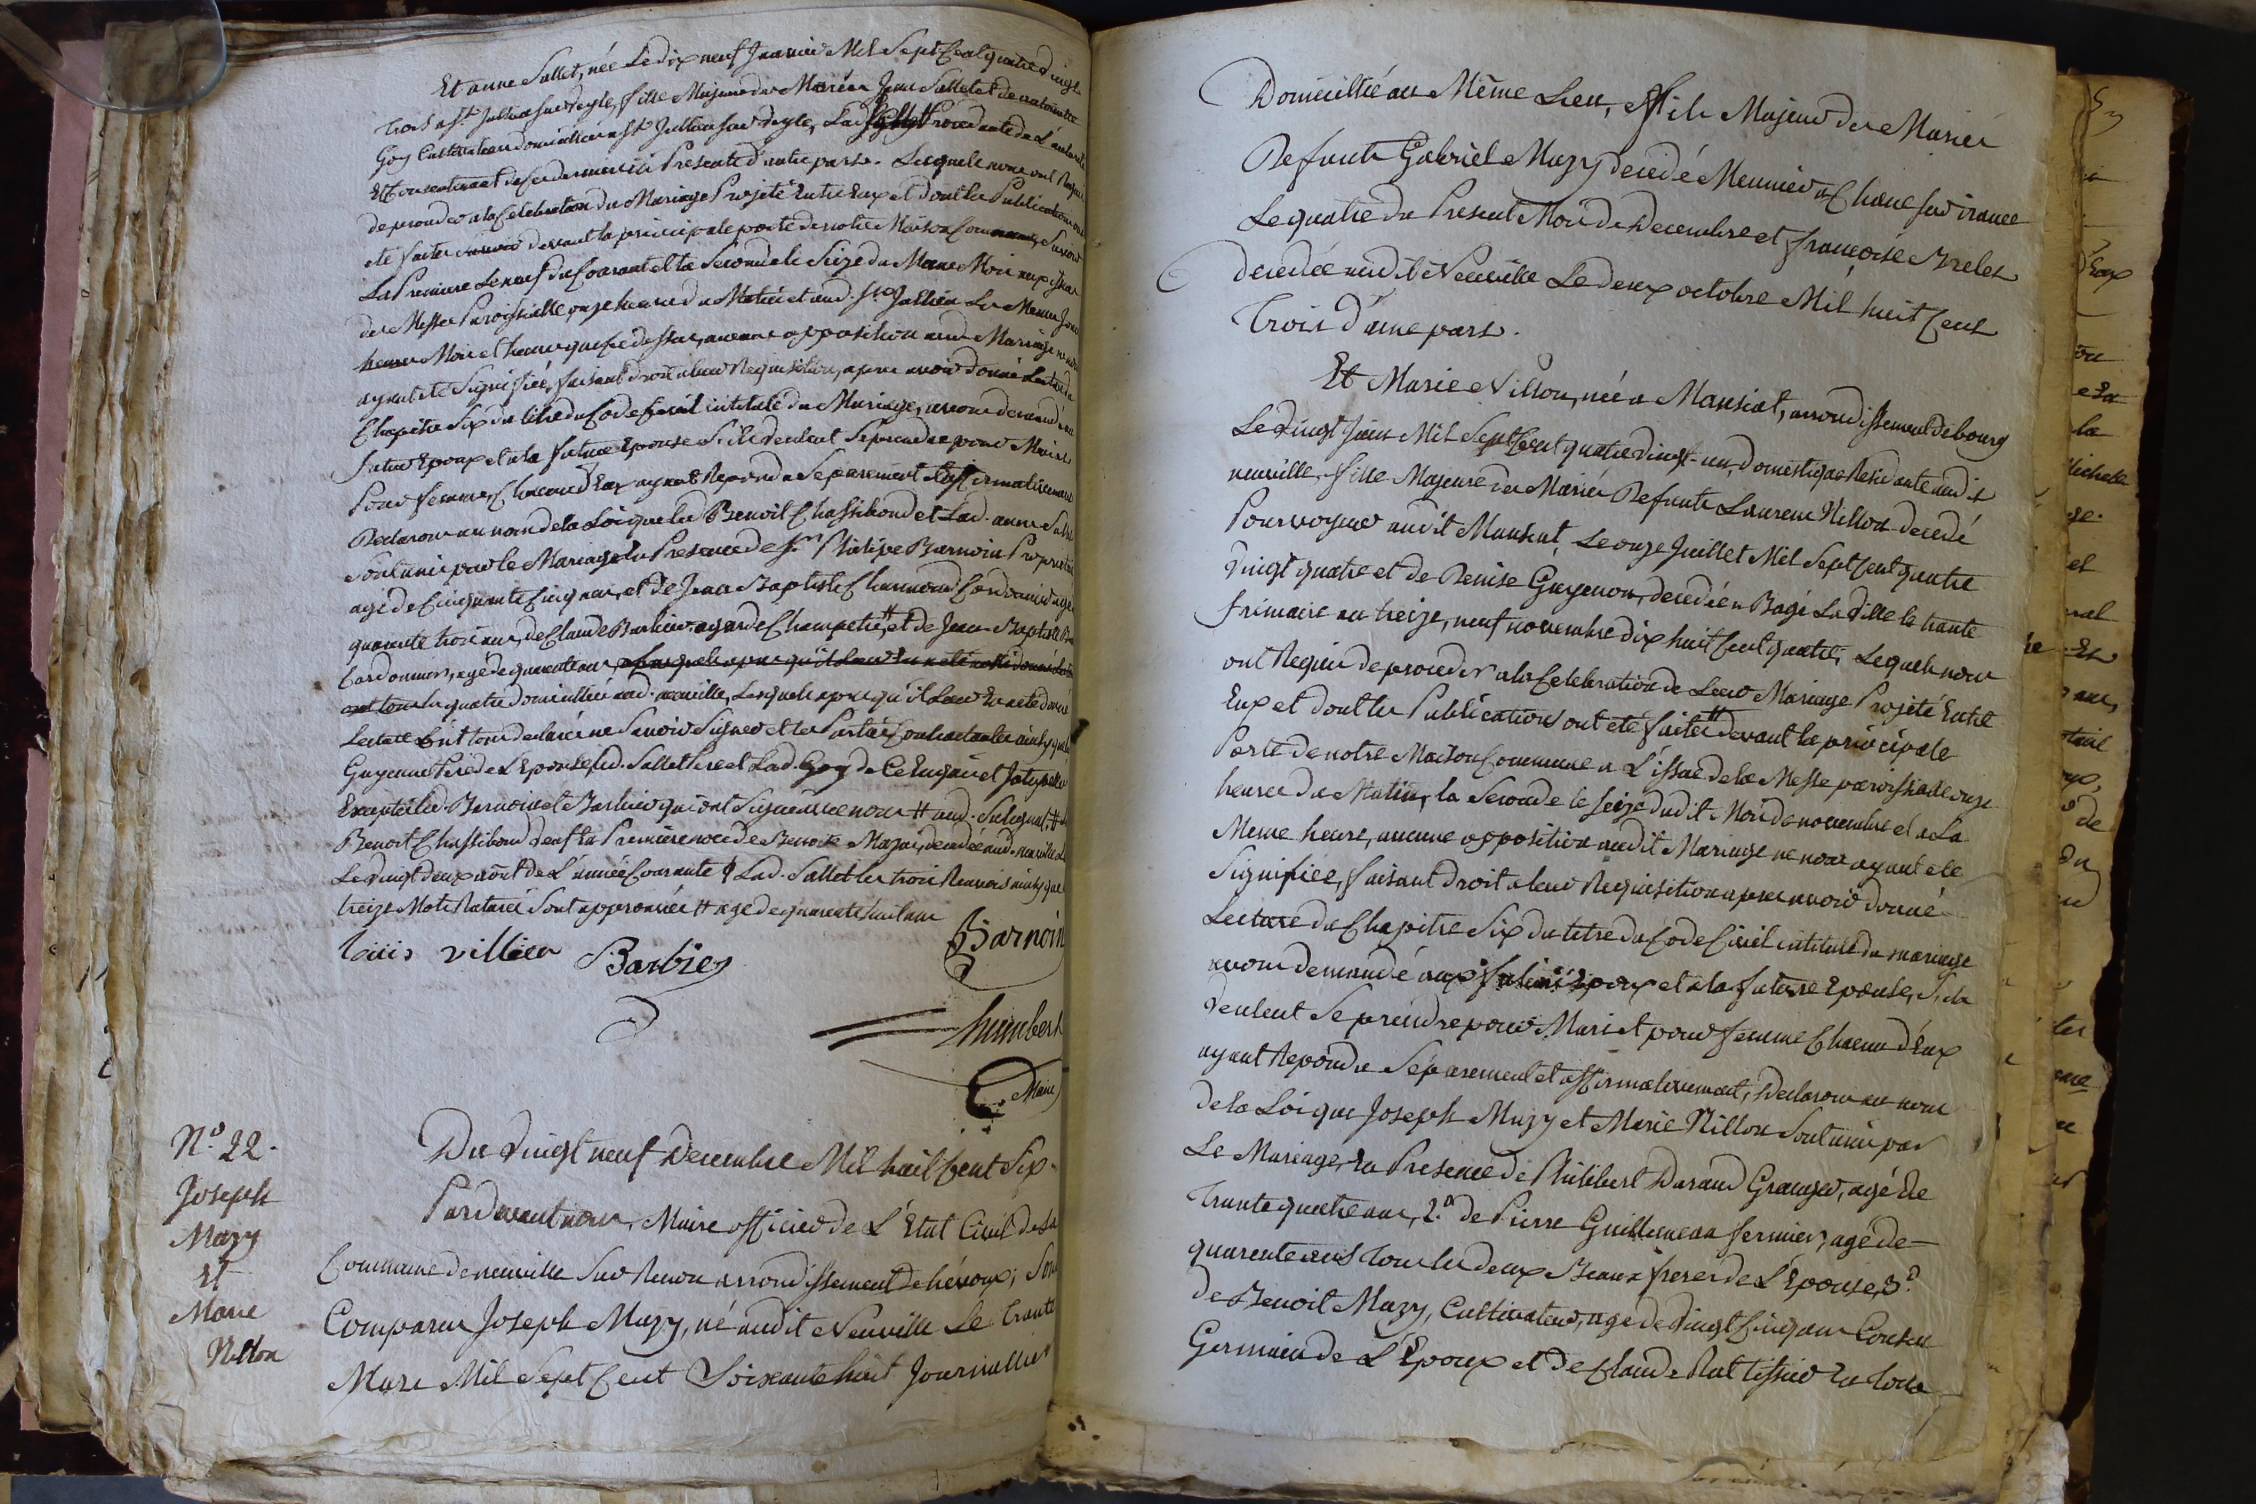 Et anne Sallet, née Le dix neuf Janvier Mil Sept Cent quatre vingt
trois a St Jullien sur Veyle, fille Majeure de Mariés Jean Sallet et de
Goy Cultivateurs domiciliés a St Jullien sur Veyle, Lad. procedante de L'autorité
Et Consentement de Ces derniers ici Presents d'autre part. Lesquels nous ont Requis
de proceder a la Celebration du Mariage Projeté Entre Eux et dont les Publications ont
eté faites devant la principale porte de notre Maison Commune Savoir
La Premiere Le neuf du Courant et la Seconde le Sieze du Meme Mois aux issues
des Messes Paroissialle, onze heures du Matin et aud. St Jullien Les Memes Jours
heures Mois et heures que Ci dessus, aucune opposition aud. Mariage ne nous
ayant eté Signifiée, faisant droit a leur Requisition, apres avoir donné Lecture du
Chapitre Six du titre du Code Civil intitulé du Mariage, avons demandé au
futur Epoux et a la future Epouse S'ils veulent Se prendre pour Mari et
Pour femme, Chacun d'Eux ayant Repondu Separement et affirmativement
Declarons au nom de la Loi que led. Benoit Chassiboud et Lad. anne Sallet
Sont unis par le Mariage En Presence de Philipe Barnoin Proprietaire
agé de Cinquante Cinq ans, et de Jean Baptiste Cordonnier agé de
quarante trois ans, de Claude Barbier garde Champetre # et de Jean Baptiste
Cordonnier, agé de quarante ans,
tous les quatre domiciliés aud. neuville, Lesquels apres qu'il Leur En a eté donné
Lecture Ont tous declarés ne Savoir Signer et les Parties Contractantes ainsy que
Pere de L'Epouse, led. Sallet Pere et Lad. Goy de Ce Enquis et Interpellés
Excepté led. Barnoin et Barbier qui ont Signé avec nous #
Benoit Chassiboud veuf En Premiere noce de Benoite décedée aud. neuville
Le vingt deux aôut de L'année Courante # Lad. Sallet Les trois Renvois ainsy que
treize Mots Raturés Sont approuvés # agé de quarante huit ans
Louis villier Barbier Barnoin
humbert
Maire
N.º 22.
Joseph
Mazy
Et
Marie
Nillon
Du vingt neuf Decembre Mil huit Cent Six.
Pardevant nous, Maire officier de L'Etat Civil de La
Commune de neuville Sur Renon arrondissement de trévoux; Sont
Comparus Joseph Muzy, né audit Neuville Le trente
Mars Mil Sept Cent Soixante huit Journallier
Domicillié au Même Lieu, Fils Majeur des Mariés
Defunts Gabriel Muzy decedé Meunier a Chane Sur
Le quatre du Present Mois de Decembre et françoise Brelet
decedée audit Neuville Le deux octobre Mil huit Cent
Trois d'une part.
Et Marie Nillon, née a Mansiat, arrondissement de bourg
Le vingt Juin Mil Sept Cent quatre vingt-un, domestique Residante audit
neuville, fille Majeure des Mariés Defunts Laurent Nillon decedé
Pourvoyeur audit Mansiat, Le onze Juillet Mil Sept Cent quatre
vingt quatre et de Denise Guyenon, decedée a Bagé La Ville le trente
frimaire an treize, neuf novembre dix huit Cent quatre; Lesquels nous
ont Requis de proceder a la Celebration de Leur Mariage Projeté Entre
Eux et dont les Publications ont eté faites # devant la principale
Porte de notre Maison Commune a L'issue de la Messe paroissiale onze
heures du Matin, la Seconde le Seize dudit Mois de novembre et a La
Meme heure, aucune opposition audit Mariage ne nous ayant eté
Signifiée, faisant droit a leur Requisition apres avoir donné
Lecture du Chapitre Six du titre du Code Civil intitulé du mariage
avons demandé aux futur Epoux et a la future Epouse, S'ils
veulent Se prendre pour Mari et pour femme Chacun d'Eux
ayant Repondu Séparement et affirmativement, Declarons au nom
de la Loi que Joseph Muzy et Marie Nillon Sont unis par
Le Mariage, En Presence de Philibert Durand Granger, agé de
Trente quatre ans, 2.º de Pierre Guillemeau fermier, agé de
quarente ans tous les deux Beaux freres de L'Epouse, 3.º
de Benoit Muzy, Cultivateur, agé de vingt Cinq ans Cousin
Germain de L'Epoux et de Claude Rat tissier En toile